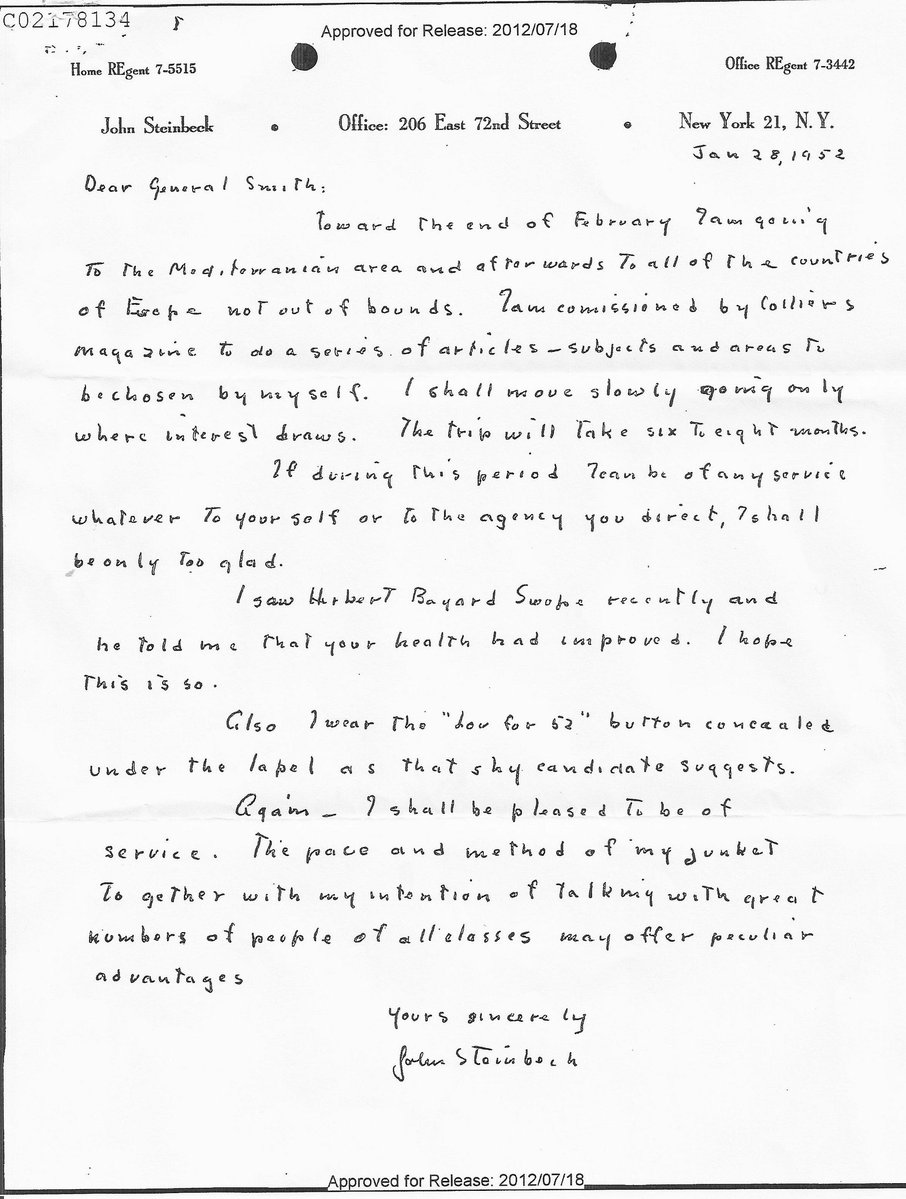 C02178134
Approved for Release: 2012/07/18
Home REgent 7-5515
Office REgent 7-3442
John Steinbeck • Office: 206 East 72nd Street • New York 21, N. Y.
Jan 28, 1952
Dear General Smith:
Toward the end of February I am going
to the Mediterranian area and afterwards to all of the countries
of Europe not out of bounds. I am comissioned by Colliers
magazine to do a series of articles — subjects and areas to
be chosen by myself. I shall move slowly going only
where interest draws. The trip will take six to eight months.
If during this period I can be of any service
whatever to yourself or to the agency you direct, I shall
be only too glad.
I saw Herbert Bayard Swope recently and
he told me that your health had improved. I hope
this is so.
Also I wear the "Lou for 52" button concealed
under the lapel as that shy candidate suggests.
Again — I shall be pleased to be of
service. The pace and method of my junket
together with my intention of talking with great
numbers of people of all classes may offer peculiar
advantages
Yours sincerely
John Steinbeck
Approved for Release: 2012/07/18